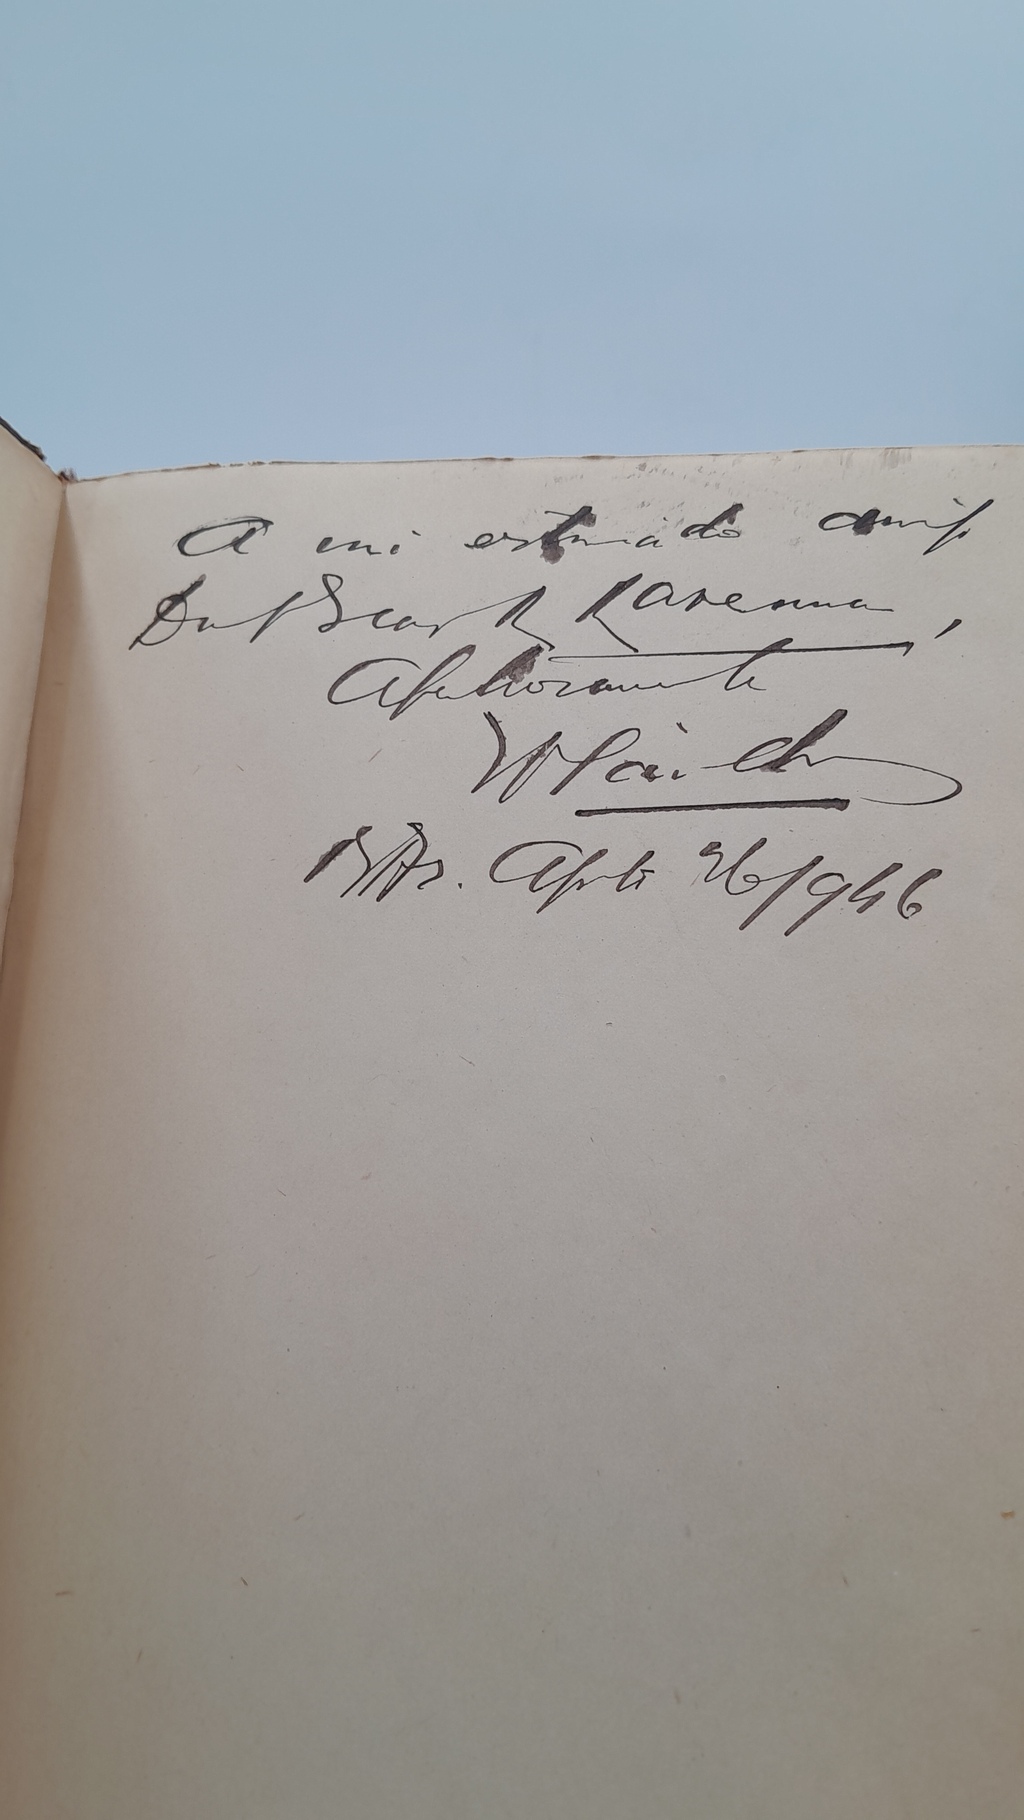 A mi estimado amigo
Ravenna,
Afectuosamente
BAs. Agosto 26/946